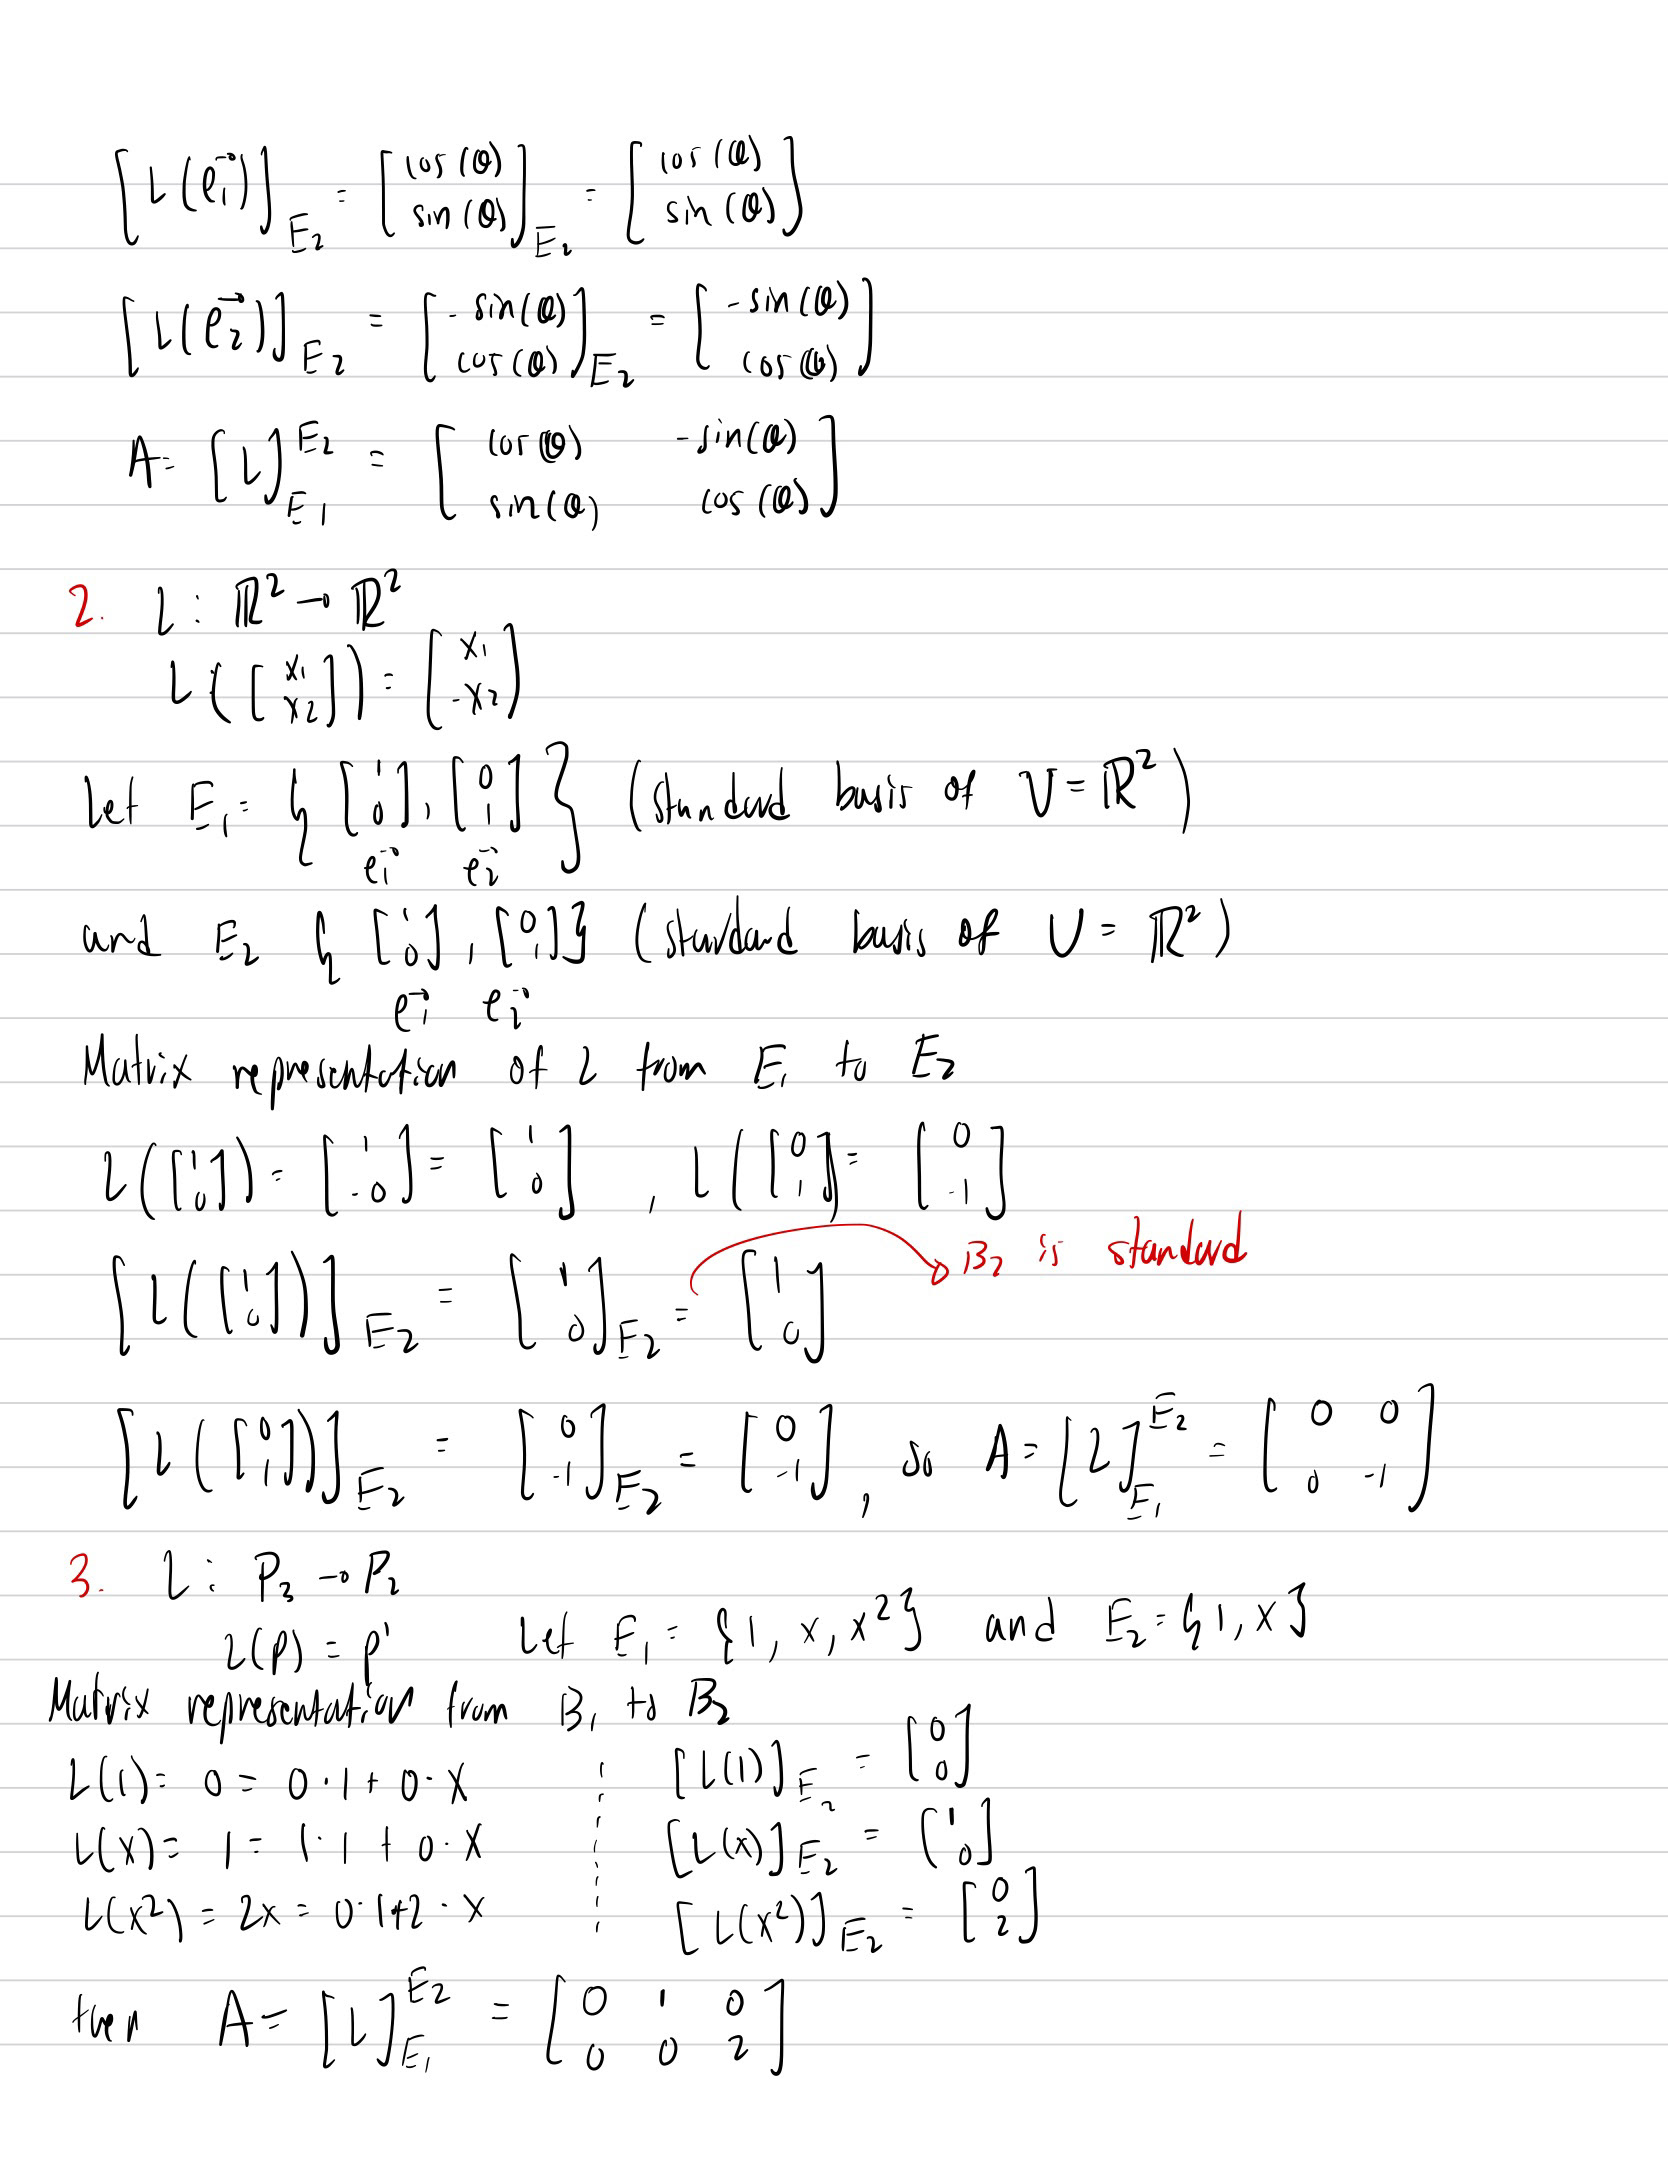 [L(e₁⃗)]_E₂ = [cos(θ); sin(θ)]_E₂ = [cos(θ); sin(θ)]
[L(e₂⃗)]_E₂ = [-sin(θ); cos(θ)]_E₂ = [-sin(θ); cos(θ)]
A = [L]_E₁^E₂ = [cos(θ) -sin(θ); sin(θ) cos(θ)]
2. L: ℝ² → ℝ²
L([x₁; x₂]) = [x₁; -x₂]
Let E₁ = {[1; 0], [0; 1]} (standard basis of V = ℝ²)
e₁⃗ e₂⃗
and E₂ {[1; 0], [0; 1]} (standard basis of U = ℝ²)
e₁⃗ e₂⃗
Matrix representation of L from E₁ to E₂
L([1; 0]) = [1; -0] = [1; 0], L([0; 1]) = [0; -1]
B₂ is standard
[L([1; 0])]_E₂ = [1; 0]_E₂ = [1; 0]
[L([0; 1])]_E₂ = [0; -1]_E₂ = [0; -1], so A = [L]_E₁^E₂ = [0 0; 0 -1]
3. L: P₃ → P₂
L(p) = p' Let E₁ = {1, x, x²} and E₂ = {1, x}
Matrix representation from B₁ to B₂
L(1) = 0 = 0·1 + 0·x [L(1)]_E₂ = [0; 0]
L(x) = 1 = 1·1 + 0·x [L(x)]_E₂ = [1; 0]
L(x²) = 2x = 0·1+2·x [L(x²)]_E₂ = [0; 2]
then A = [L]_E₁^E₂ = [0 1 0; 0 0 2]